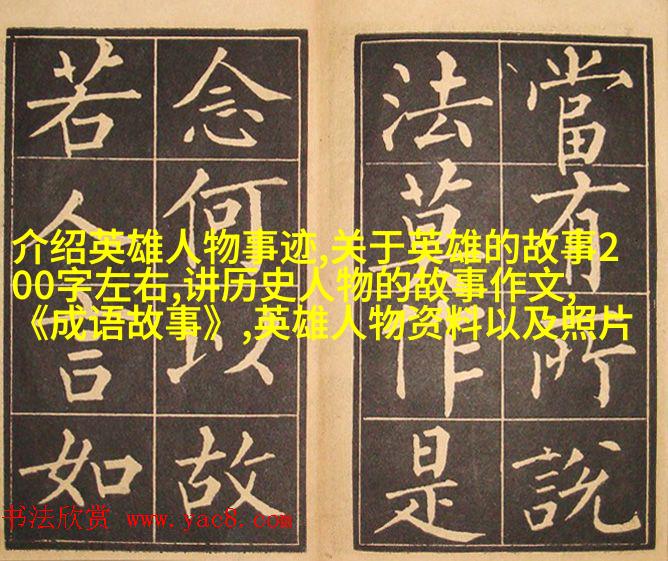 當有所說
法莫作是
念何以故
若人言如
介绍英雄人物事迹,关于英雄的故事2
00字左右,讲历史人物的故事作文,
《成语故事》,英雄人物资料以及照片
书法欣赏 www.yac8.com